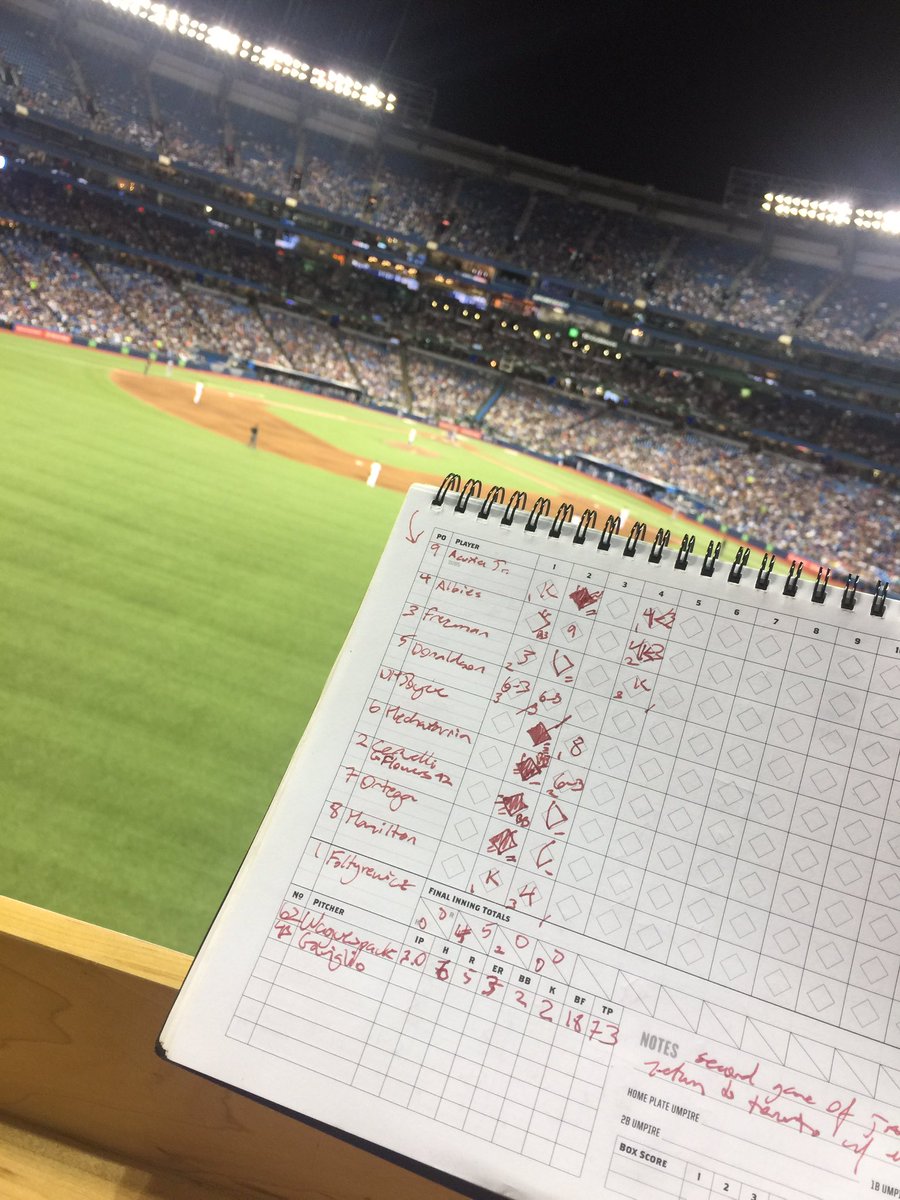 PO PLAYER 1 2 3 4 5 6 7 8 9 10
9 Acuña Jr. K
4 Albies 9
3 Freeman 3 K
5 Donaldson 6-3 6-3
DH Joyce 8
6 Hechavarria 6-3
2 Cervelli
Flowers
7 Ortega
8 Hamilton K 4
1 Foltynewicz
FINAL INNING TOTALS
Nº PITCHER IP H R ER BB K BF TP
62 Waguespack 3.0 6 5 3 2 2 18 73
Gaviglio
NOTES second game of
return to Toronto w/
HOME PLATE UMPIRE
2B UMPIRE
1B UMPI
BOX SCORE 1 2 3